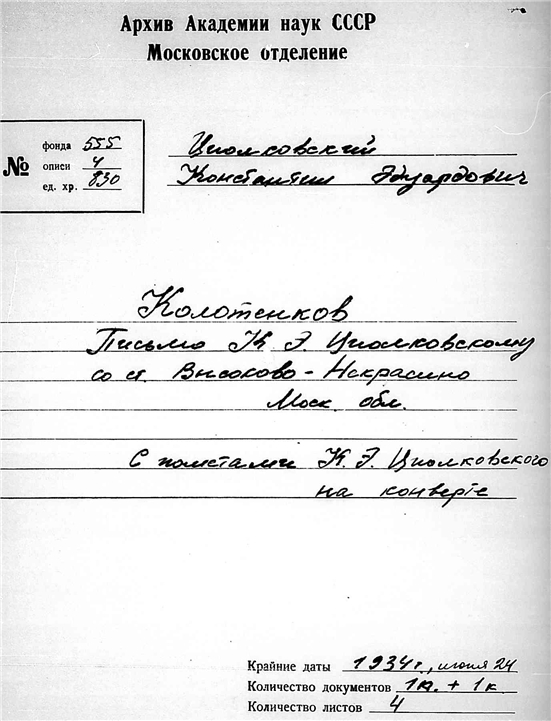 Архив Академии наук СССР
Московское отделение
№
фонда 555
описи 4
ед. хр. 830
Циолковский
Константин Эдуардович
Колотенков
Письмо К. Э. Циолковскому
со ст. Высоково-Некрасино
Моск. обл.
С пометами К. Э. Циолковского
на конверте
Крайние даты 1934 г., июня 24
Количество документов 1 к. + 1 к.
Количество листов 4